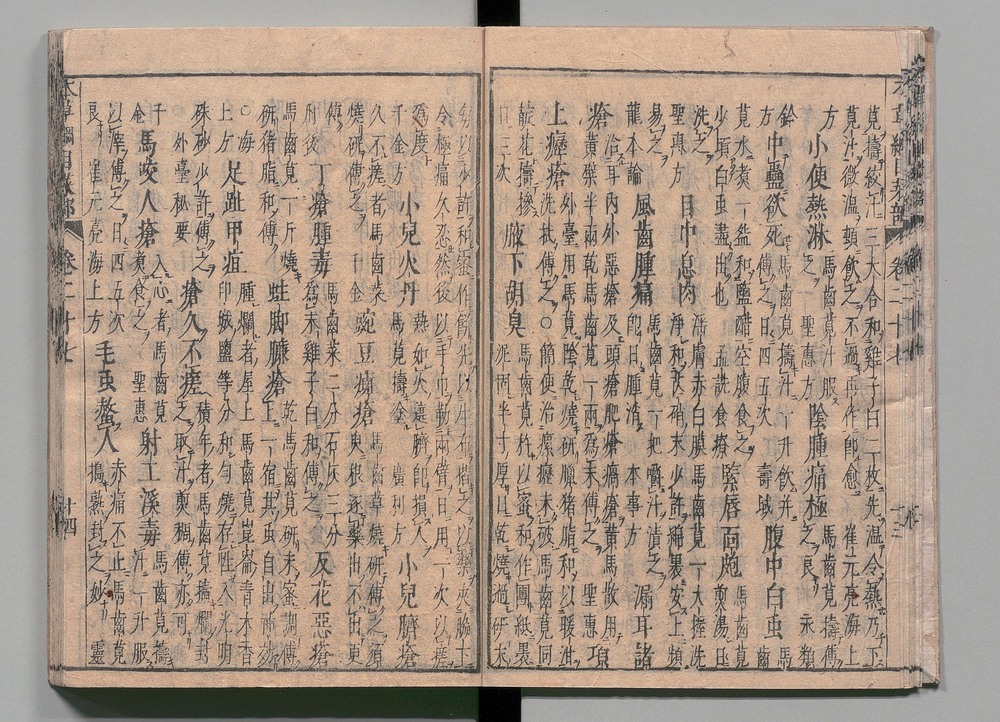 莧擣絞汁三大合和雞子白二枚先温令熱乃下
莧汁微温頓飲之不過再作即愈 崔元亮海上
方 小便熱淋 馬齒莧汁服之 聖惠方 陰腫痛極 馬齒莧擣傅之良 永類
鈐方 中蠱欲死 馬齒莧擣汁一升飲并傅之日四五次 壽域 腹中白虫 馬齒
莧水煮一盌和鹽醋空腹食之
少頃白虫盡出也 孟詵食療 緊唇面皰 馬齒莧煎湯日
洗之 聖惠方 目中息肉 淫膚赤白膜馬齒莧一大握洗淨和芒硝末少許綿裹安上頻
易之 龍木論 風齒腫痛 馬齒莧一把嚼汁漬之即日腫消 本事方 漏耳諸
瘡 治耳內外惡瘡及頭瘡肥瘡瘑瘡黃馬散用黃蘗半兩乾馬齒莧一兩爲末傅之 聖惠 項
上癧瘡 外臺用馬齒莧陰乾燒研臘猪脂和以暖泔洗拭傅之○簡便治瘰癧未破馬齒莧同
靛花擣摻日三次 腋下胡臭 馬齒莧杵以蜜和作團紙裹泥固半寸厚日乾燒過研末
每以少許和蜜作餅先以生布揩之以藥夾脇下
令極痛久忍然後以手巾勒兩臂日用一次以瘥
爲度 千金方 小兒火丹 熱如火遶臍即損人馬莧擣塗 廣利方 小兒臍瘡
久不瘥者馬齒菜燒研傅之 千金 豌豆癍瘡 馬齒草燒研傅之須臾根逐藥出不出更
傅 肘後 丁瘡腫毒 馬齒菜二分石灰三分爲末雞子白和傅之 反花惡瘡
馬齒莧一斤燒研猪脂和傅 蛀腳臁瘡 乾馬齒莧研末蜜調傅上一宿其虫自出神效
○海上方 足趾甲疽 腫爛者屋上馬齒莧崑崙青木香印城鹽等分和勻燒存性入光明
硃砂少許傅之 外臺秘要 瘡久不瘥 積年者馬齒莧擣爛封之取汁煎稠傅亦可
千金 馬咬人瘡 入心者馬齒莧煮食之 聖惠 射工溪毒 馬齒莧擣汁一升服
以滓傅之日四五次
良 崔元亮海上方 毛虫螫人 赤痛不止馬齒莧擣熟封之妙 靈
本草綱目菜部 卷二十七 十四